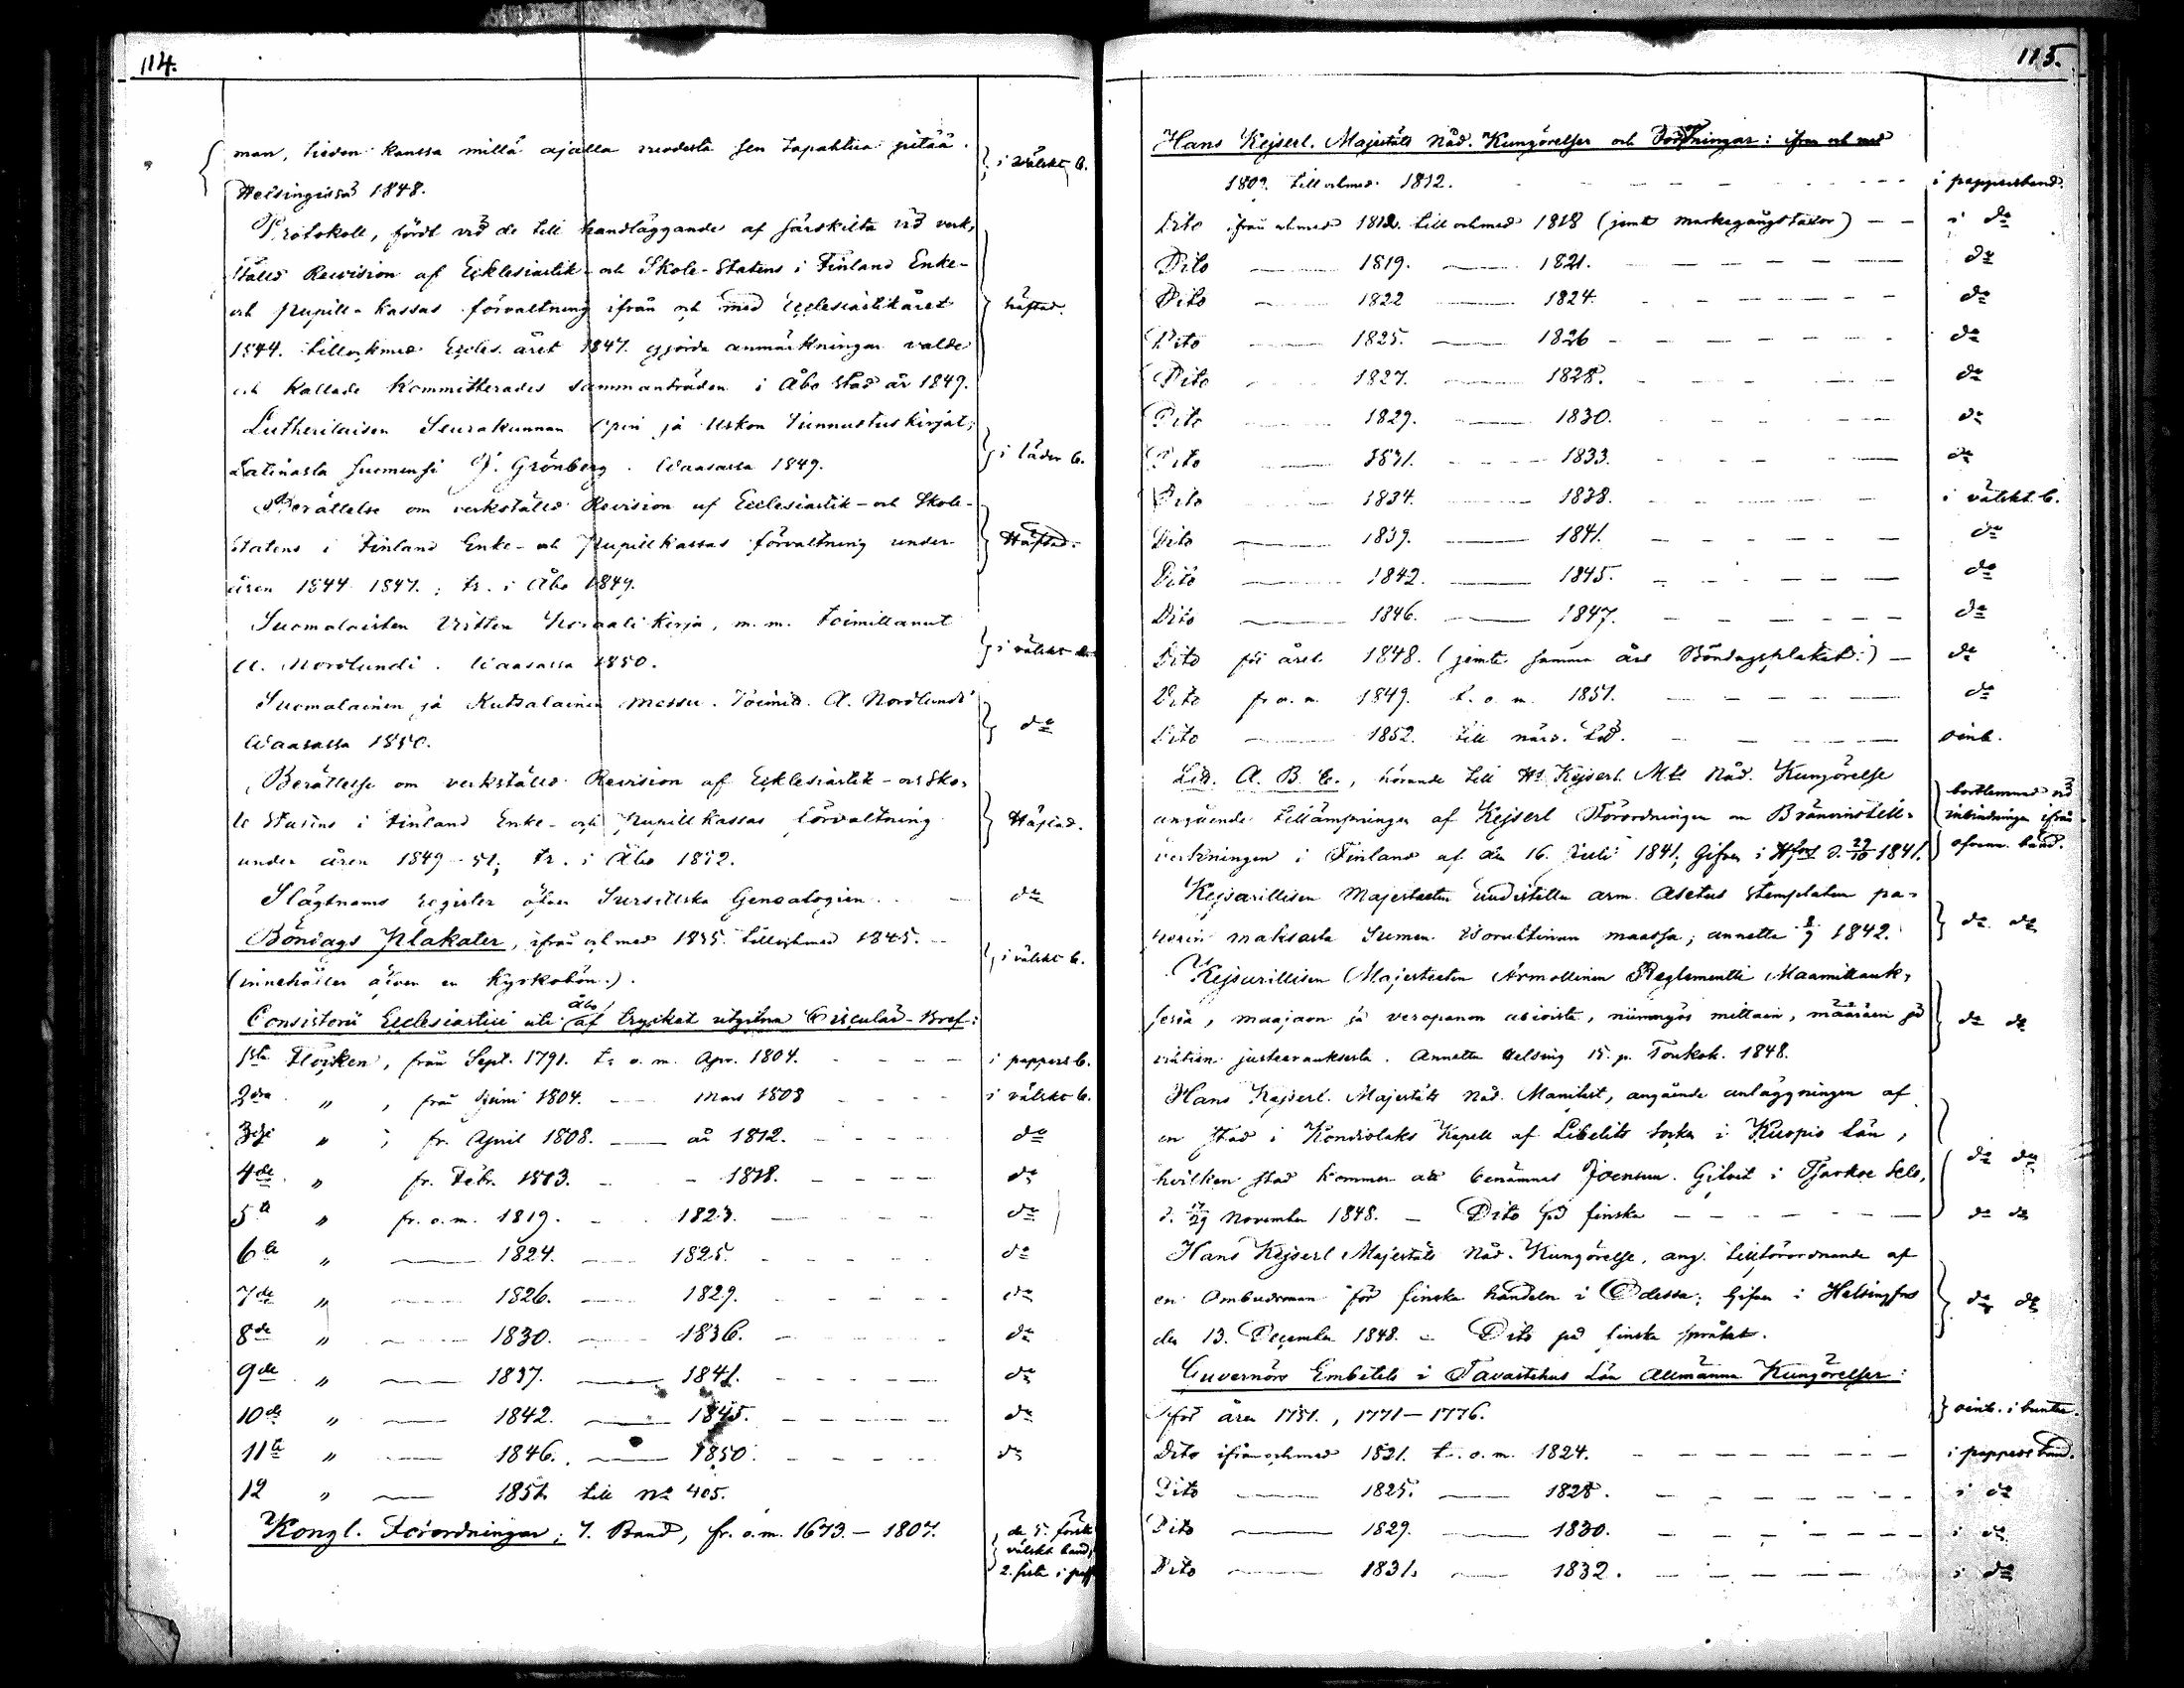 114.
man, tieden kanssa millä ajalla vuodesta sen tapahtua pitää. } i wälskt b.
Helsingissä 1848.
Protokoll, fördt vid de till handläggande af särskilta vid verk-
ställd Revision af Ecklesiastik- och Skole-Statens i Finland Enke-
och pupill-kassas förvaltning ifrån och med Ecclesiastikåret } häftad.
1844. till och med Eccles. året 1847. gjorda anmärkningar valde
och kallade Kommitterades sammanträden i Åbo stad år 1849.
Lutherilaisen Seurakunnan Opin ja Uskon Tunnustus kirjat,
Latinasta suomensi J. Grönberg. Waasassa 1849. } i läder b.
Berättelse om verkställd Revision af Ecclesiastik- och Skole-
statens i Finland Enke- och Pupillkassas förvaltning under } Häftad.
åren 1844 1847.; tr. i Åbo 1849.
Suomalaisten Virtten Koraali kirja, m. m. toimittanut
A. Nordlundi. Waasassa 1850. } i wälskt
Suomalainen ja Ruttsalainen Messu. Toimit. A. Nordlundi
Waasassa 1850. } do
Berättelse om verkställd Revision af Ecklesiastik- och Sko-
le Statens i Finland Enke- och pupillkassas förvaltning } Häftad.
under åren 1849-51; tr. i Åbo 1852.
Slägtnams register öfver Sursillska Genealogien. do
Böndags Plakater, ifrån och med 1835. till och med 1845.
(innehåller äfven en Kyrkobön.). } i wälskt b.
Consistorii Ecclesiastici uti Åbo, af trycket utgifna Circulär-Bref:
1sta Flocken, från Sept. 1791. t. o. m. Apr. 1804. i pappers b.
2dra " , från Juni 1804. — Mars 1808 i wälskt b.
3dje " ; fr. April 1808. — år 1812. do
4de " fr. Febr. 1813. - - 1818. do
5te " fr. o. m. 1819. - 1823. do
6te " — 1824. — 1825. do
7de " — 1826. — 1829. do
8de " — 1830. — 1836. do
9de " — 1837. — 1841. do
10de " — 1842. — 1845. do
11te " — 1846. — 1850. do
12 " — 1851. till No 405.
Kongl. Förordningar; 7. Band, fr. o. m. 1673.-1807. } de 5. första
wälskt band,
2. sista i
115.
Hans Kejserl. Majestäts Nåd. Kungörelser och Förordningar: ifrån och med
1809. till och med 1812. i pappersband.
Dito ifrån och med 1812. till och med 1818 (jemte markegångstaxor) — i do
Dito — 1819. — 1821. do
Dito — 1822 — 1824. do
Dito — 1825. — 1826 do
Dito — 1827. — 1828. do
Dito — 1829. — 1830. do
Dito — 1831. — 1833. do
Dito — 1834. — 1838. i wälskt. b.
Dito — 1839. — 1841. do
Dito — 1842. — 1845. do
Dito — 1846. — 1847. do
Dito för året 1848. (jemte samma års Böndagsplakat.) — do
Dito fr o. m. 1849. t. o. m. 1851. do
Dito — 1852. till närv. tid. oinb.
Litt. A. B. C., hörande till Hs Kejserl. Mts Nåd. Kungörelse
angående tillämpningen af Kejserl Förordningen om Brännvinstill- } bortlemnad vid
verkningen i Finland af den 16. Juli 1841; Gifven i Hfors d. 29/10 1841. inbindningen ifrån
ofvann. band.
Kejsarillisen Majesteetin uudistettu arm. Asetus stemplatun pa-
perin maksosta Suomen Isoruhtinan maassa; annettu 8/7 1842. } do do
Kejsarillisen Majesteetin Armollinen Reglementti Maamittauk-
sesta, maajaon ja veropanon asioista, niinmyös mittain, määräin ja } do do
vaa'ain justeerauksesta. Annettu Helsing. 15. p. Toukok. 1848.
Hans Kejserl. Majestäts Nåd. Manifest, angående anläggningen af
en stad i Kondiolaks Kapell af Libelits Socken i Kuopio län,
hvilken stad kommer att benämnas Joensuu. Gifvet i Tsarkoe Selo, do do
d. 17/29 November 1848. — Dito på finska do do
Hans Kejserl Majestäts Nåd. Kungörelse, ang. tillförordnande af
en Ombudsman för finska handeln i Odessa; Gifven i Helsingfors } do do
den 13. December 1848. — Dito på finska språket.
Guvernörs Embetets i Tavastehus Län Allmänna Kungörelser:
för åren 1751., 1771-1776. } oinb. i buntar.
Dito ifrån och med 1821. t. o. m. 1824. i pappers band.
Dito — 1825. — 1828. i do
Dito — 1829. — 1830. i do
Dito — 1831. — 1832. i do